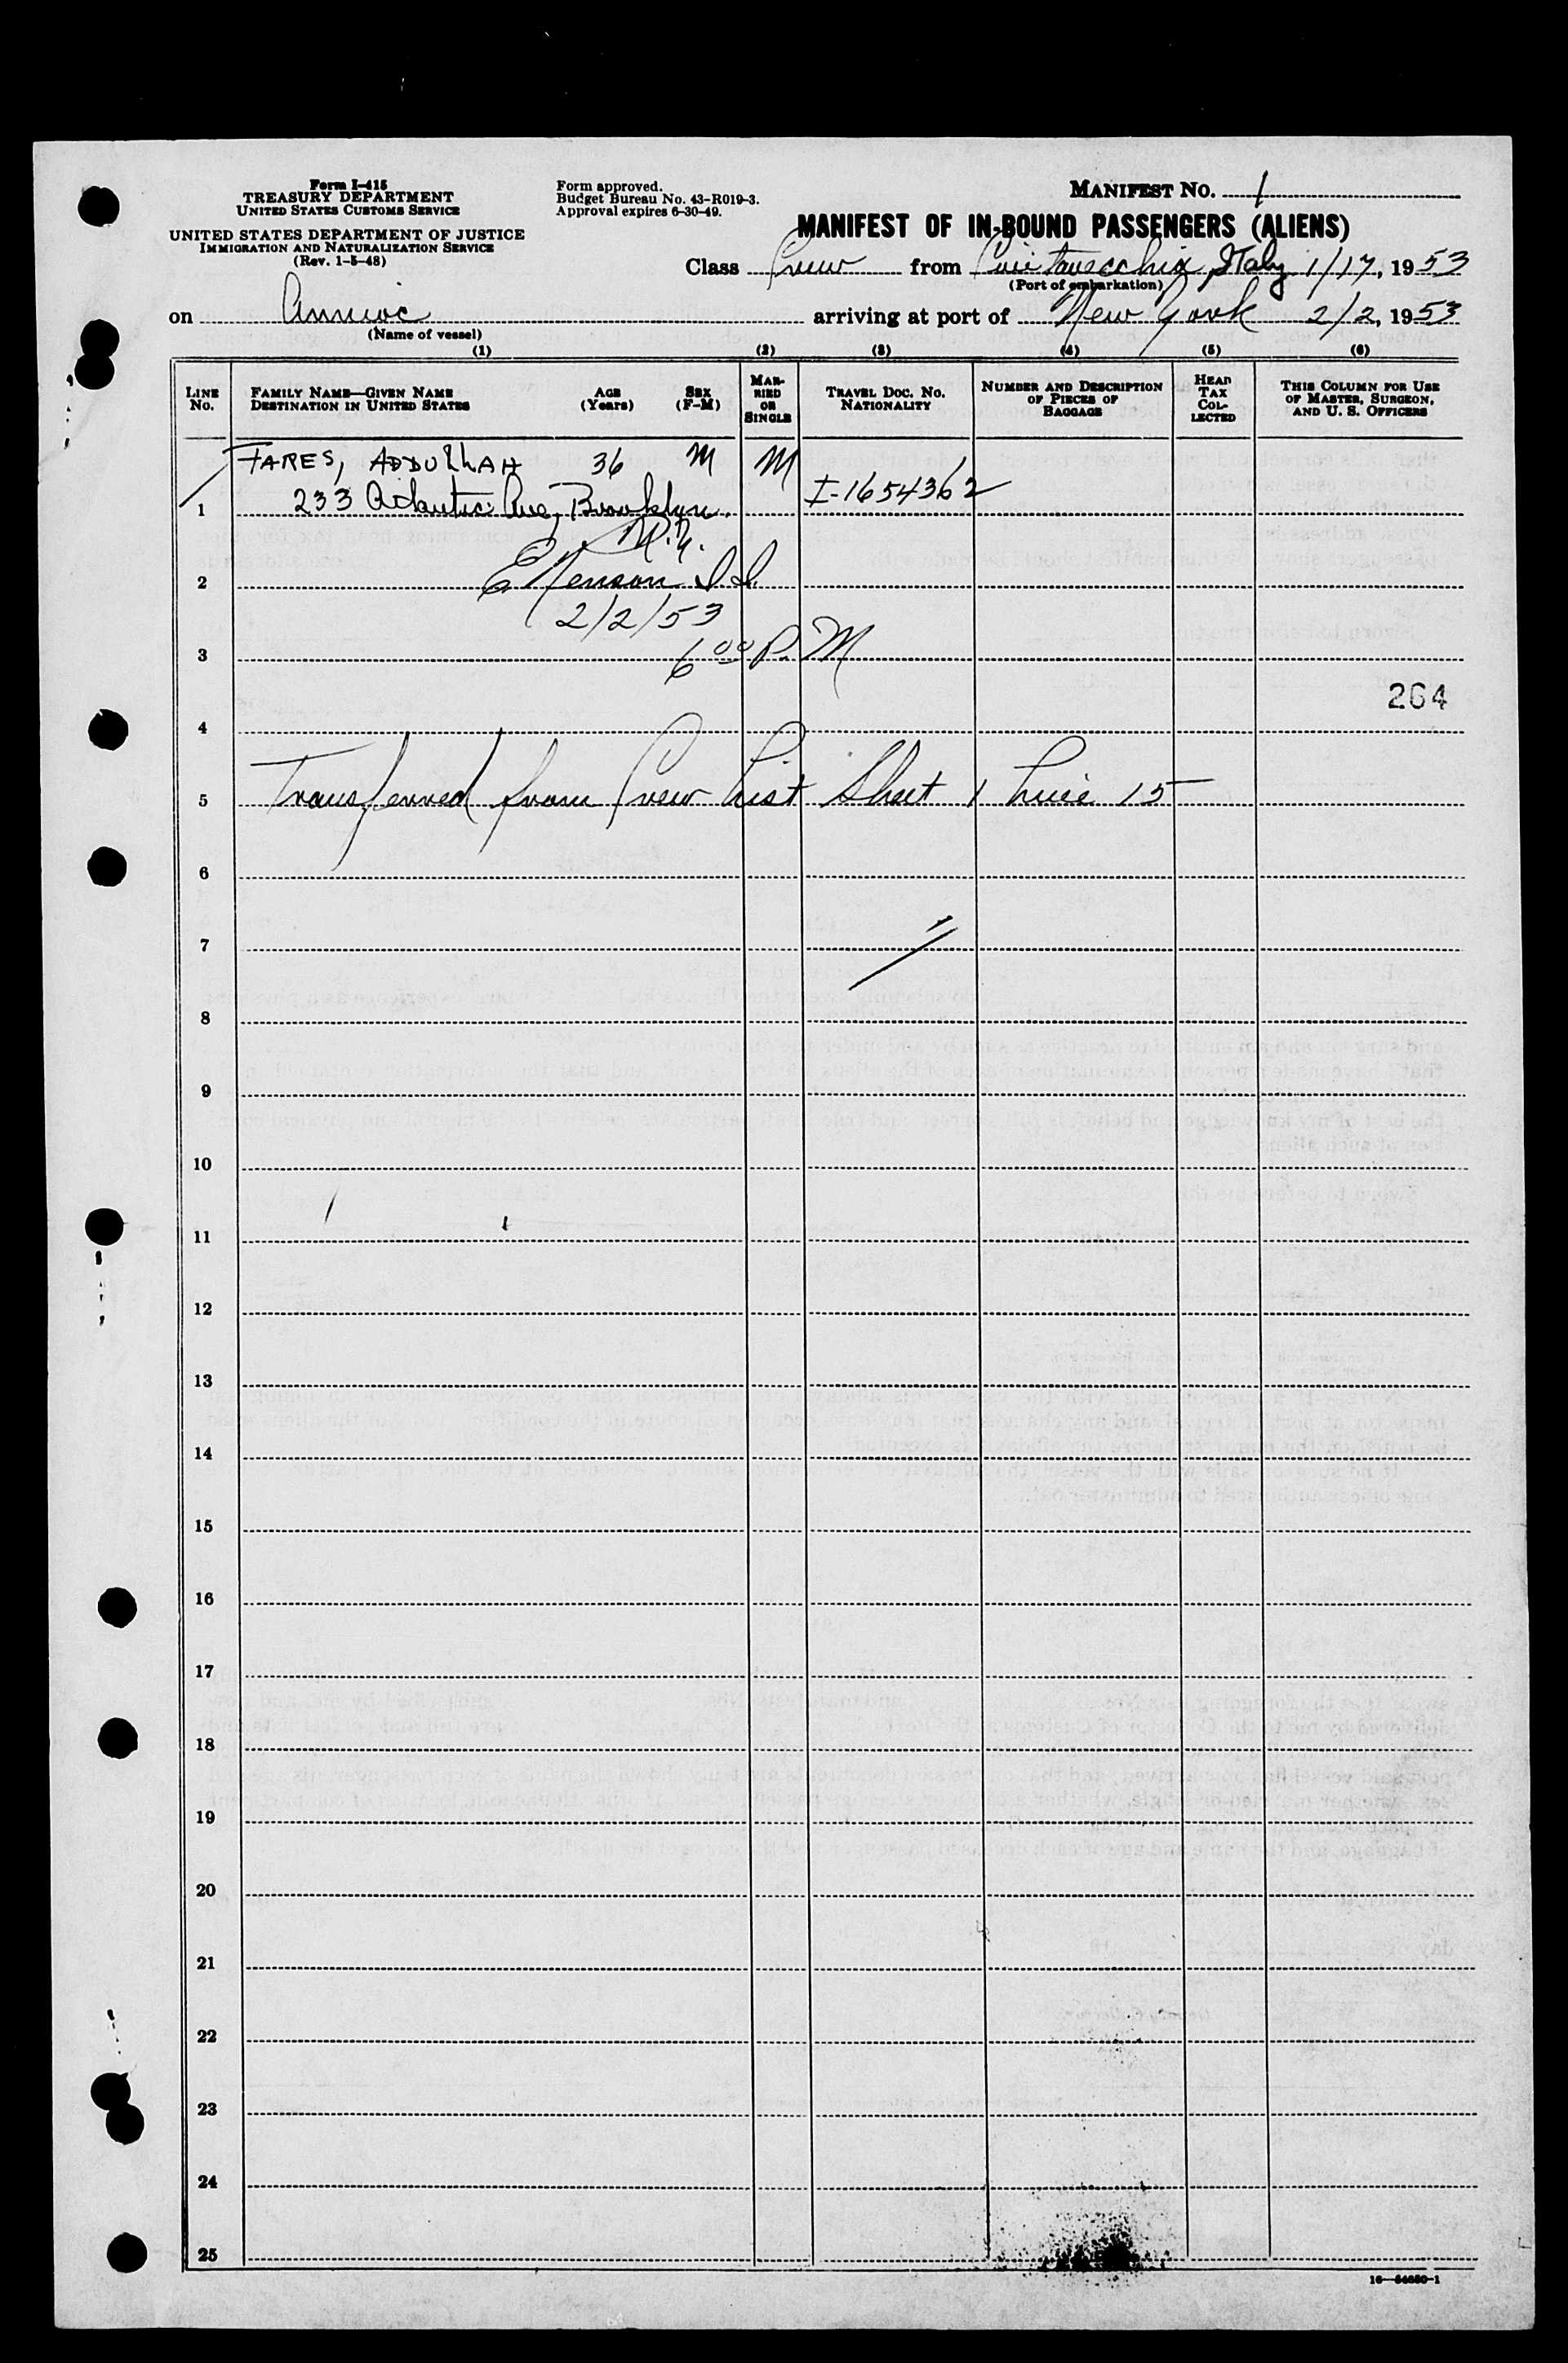 Form I-415
TREASURY DEPARTMENT
UNITED STATES CUSTOMS SERVICE
UNITED STATES DEPARTMENT OF JUSTICE
IMMIGRATION AND NATURALIZATION SERVICE
(Rev. 1-5-48)
Form approved.
Budget Bureau No. 43-R019-3.
Approval expires 6-30-49.
MANIFEST NO. 1
MANIFEST OF IN-BOUND PASSENGERS (ALIENS)
Class Crew from Civitavecchia, Italy 1/17, 1953
(Port of embarkation)
on arriving at port of New York 2/2, 1953
(Name of vessel)
(1) (2) (3) (4) (5) (6)
LINE No.
FAMILY NAME—GIVEN NAME DESTINATION IN UNITED STATES
AGE (Years)
SEX (F-M)
MARRIED OR SINGLE
TRAVEL DOC. NO. NATIONALITY
NUMBER AND DESCRIPTION OF PIECES OF BAGGAGE
HEAD TAX COLLECTED
THIS COLUMN FOR USE OF MASTER, SURGEON, AND U. S. OFFICERS
FARES, ADDULLAH 36 M M
1 233 Atlantic Ave, Brooklyn, I-1654362
N.Y.
2
2/2/53
3 6 00 P.M
264
4
5 Transferred from Crew List Sheet 1 Line 15
6
7
8
9
10
11
12
13
14
15
16
17
18
19
20
21
22
23
24
25